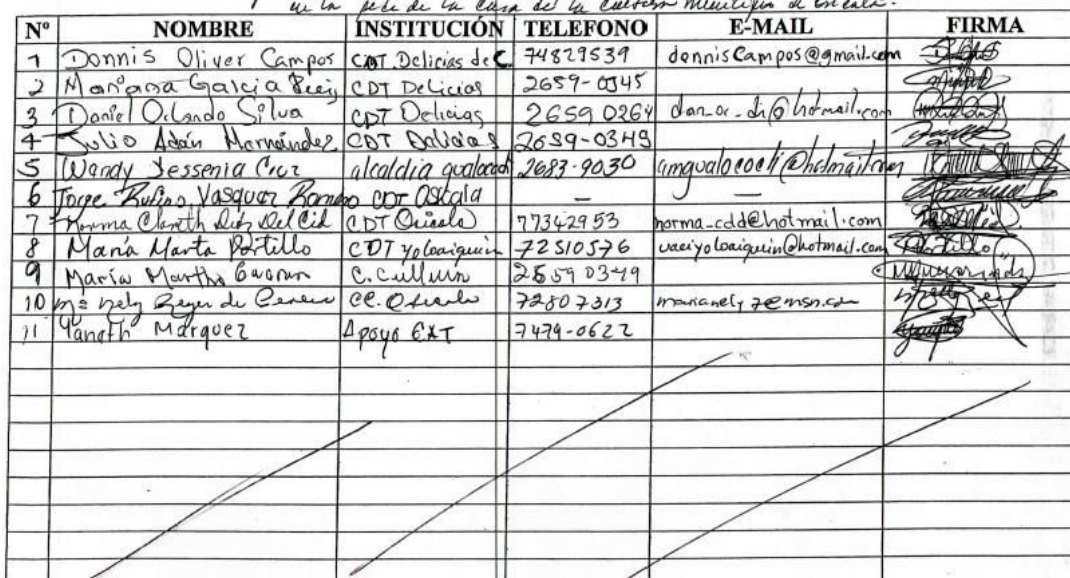 en la sede de la casa de la cultura municipio de Osicala.
Nº NOMBRE INSTITUCIÓN TELEFONO E-MAIL FIRMA
1 Donnis Oliver Campos CDT Delicias de C. 74829539 donnisCampos@gmail.com
2 Garcia CDT Delicias 2659-0345
3 Daniel Orlando Silva CDT Delicias 2659 0264 dan_or_di@hotmail.com
4 Julio Adán Hernández CDT Delicias 2659-0349
5 Wendy Yessenia Cruz alcaldia 2683-9030 amgualococti@hotmail.com
6 Jorge Rufino Vasquez Romero CDT Osicala —
7 Norma Díaz Del Cid CDT Osicala 77342953 norma_cdd@hotmail.com
8 María Marta Portillo CDT yoloaiquin 72510576 yoloaiquin@hotmail.com
9 María Martha 2659 0349
10 Mª nely Reyes de CC. Osicala 72807313 marianely7@msn.com
11 Yaneth Marquez Apoyo EAT 7479-0622